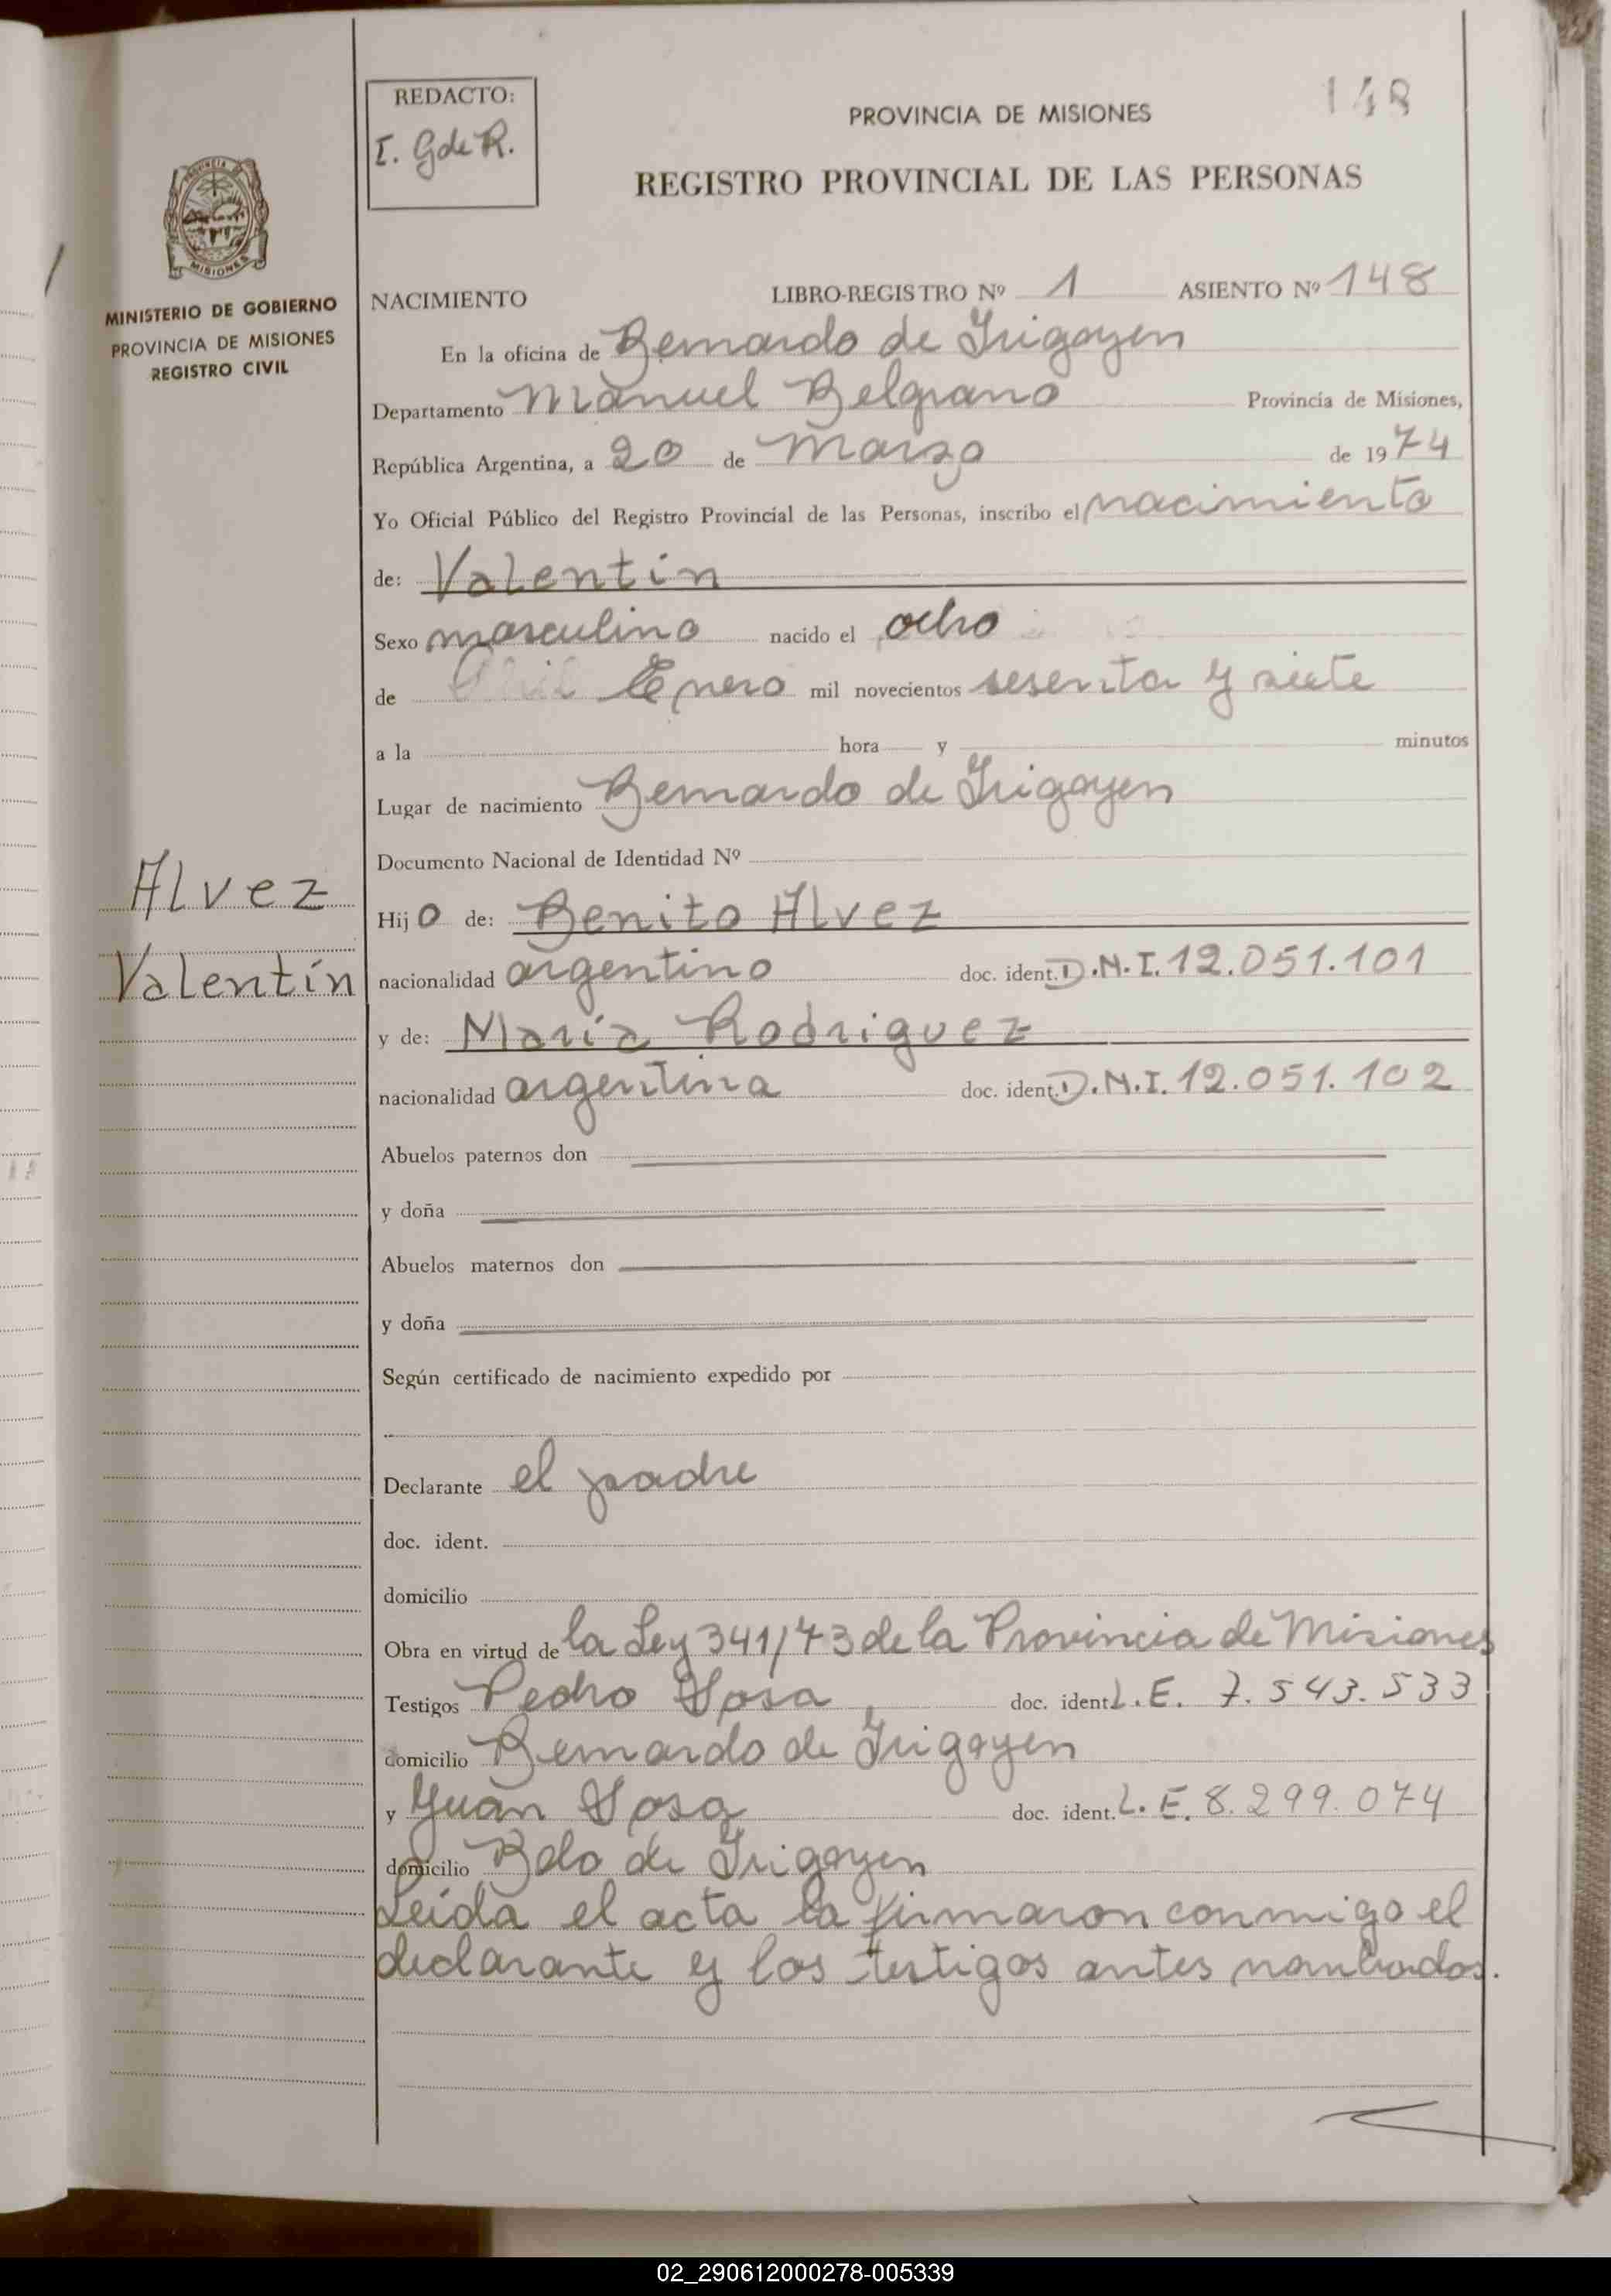 REDACTO:
I. G de R.
148
PROVINCIA DE MISIONES
REGISTRO PROVINCIAL DE LAS PERSONAS
PROVINCIA DE
MISIONES
MINISTERIO DE GOBIERNO
PROVINCIA DE MISIONES
REGISTRO CIVIL
NACIMIENTO LIBRO-REGISTRO Nº 1 ASIENTO Nº 148
En la oficina de Bernardo de Irigoyen
Departamento Manuel Belgrano Provincia de Misiones,
República Argentina, a 20 de Marzo de 1974
Yo Oficial Público del Registro Provincial de las Personas, inscribo el nacimiento
de: Valentín
Sexo masculino nacido el ocho
de Enero mil novecientos sesenta y siete
a la hora y minutos
Lugar de nacimiento Bernardo de Irigoyen
Documento Nacional de Identidad Nº
Alvez
Valentín
Hijo de: Benito Alvez
nacionalidad argentino doc. ident. D.N.I. 12.051.101
y de: María Rodriguez
nacionalidad argentina doc. ident. D.N.I. 12.051.102
Abuelos paternos don
y doña
Abuelos maternos don
y doña
Según certificado de nacimiento expedido por
Declarante el padre
doc. ident.
domicilio
Obra en virtud de la Ley 341/73 de la Provincia de Misiones
Testigos Pedro Sosa, doc. ident. L.E. 7.543.533
domicilio Bernardo de Irigoyen
y Juan Sosa doc. ident. L.E. 8.299.074
domicilio Bdo de Irigoyen
Leída el acta la firmaron conmigo el
declarante y los testigos antes nombrados.
02_290612000278-005339